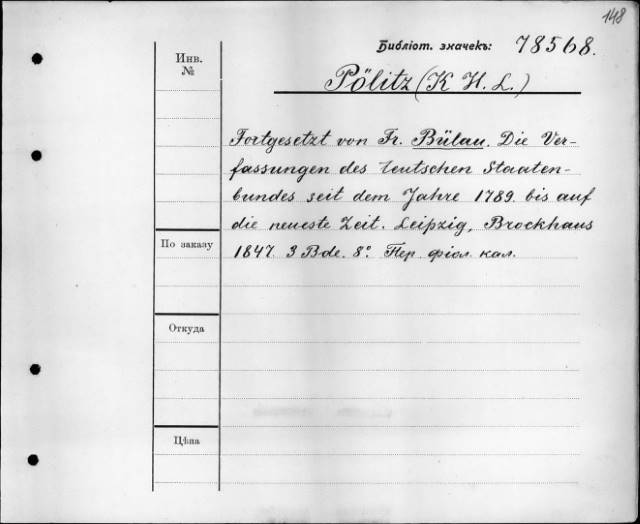 148
Библіот. значекъ: 78568.
Инв.
№
Pölitz (K. H. L.)
Fortgesetzt von Fr. Bülau. Die Ver-
fassungen des teutschen Staaten-
bundes seit dem Jahre 1789 bis auf
die neueste Zeit. Leipzig, Brockhaus
1847. 3 Bde. 8°. Пер. фіол. кал.
По заказу
Откуда
Цѣна